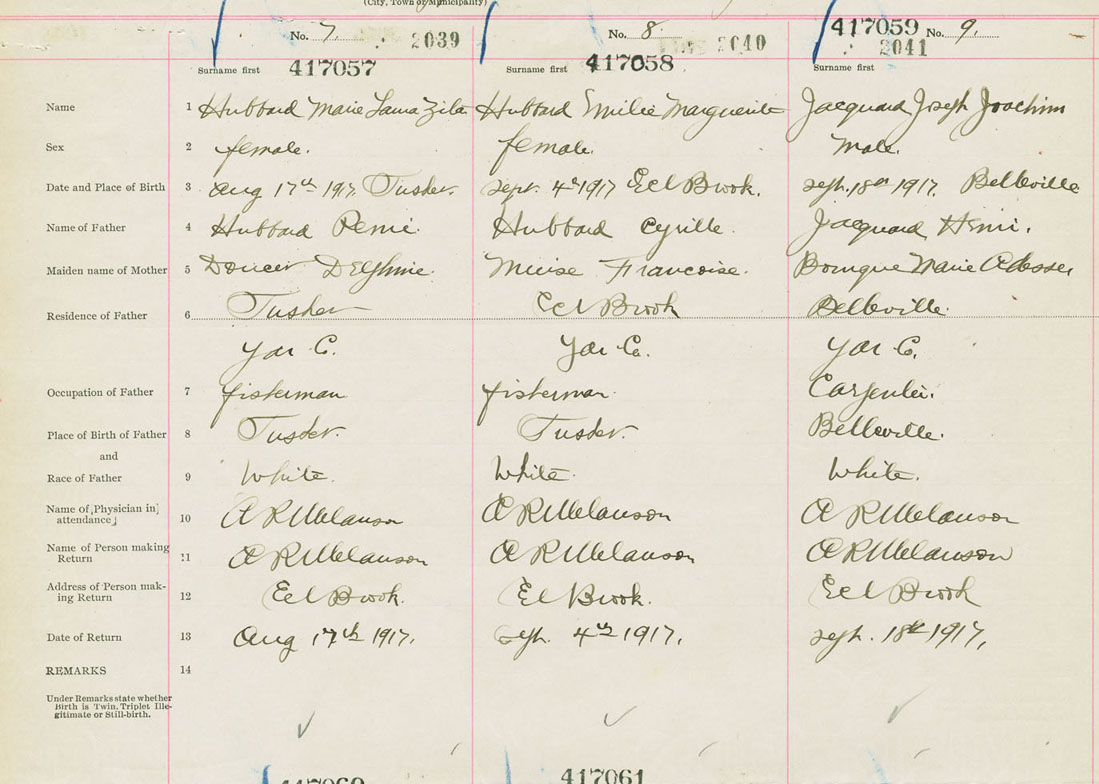 (City, Town or Municipality)
No. 7. 2039
No. 8. 2040
417059 No. 9.
2041
Surname first 417057
Surname first 417058
Surname first
Name 1 Hubbard Marie Laura Zita Hubbard Emilie Marguerite Jacquard Joseph Joachim
Sex 2 female. female. Male.
Date and Place of Birth 3 Aug 17th 1917. Tusket. Sept. 4th 1917 Eel Brook. Sept. 18th 1917. Belleville
Name of Father 4 Hubbard Remi. Hubbard Cyrille. Jacquard Henri.
Maiden name of Mother 5 Doucet Delphine. Muise Francoise. Bourque Marie
Residence of Father 6 Tusket Eel Brook Belleville.
Yar C. Yar Co. Yar C.
Occupation of Father 7 fisherman fisherman. Carpenter.
Place of Birth of Father 8 Tusket. Tusket. Belleville.
and
Race of Father 9 White. White. White.
Name of [Physician in]
attendance] 10 A R Melanson A R Melanson A R Melanson
Name of Person making
Return 11 A R Melanson A R Melanson A R Melanson
Address of Person mak-
ing Return 12 Eel Brook. Eel Brook. Eel Brook
Date of Return 13 Aug 17th 1917. Sept. 4th 1917. Sept. 18th 1917.
REMARKS 14
Under Remarks state whether
Birth is Twin, Triplet Ille-
gitimate or Still-birth.
417060 417061